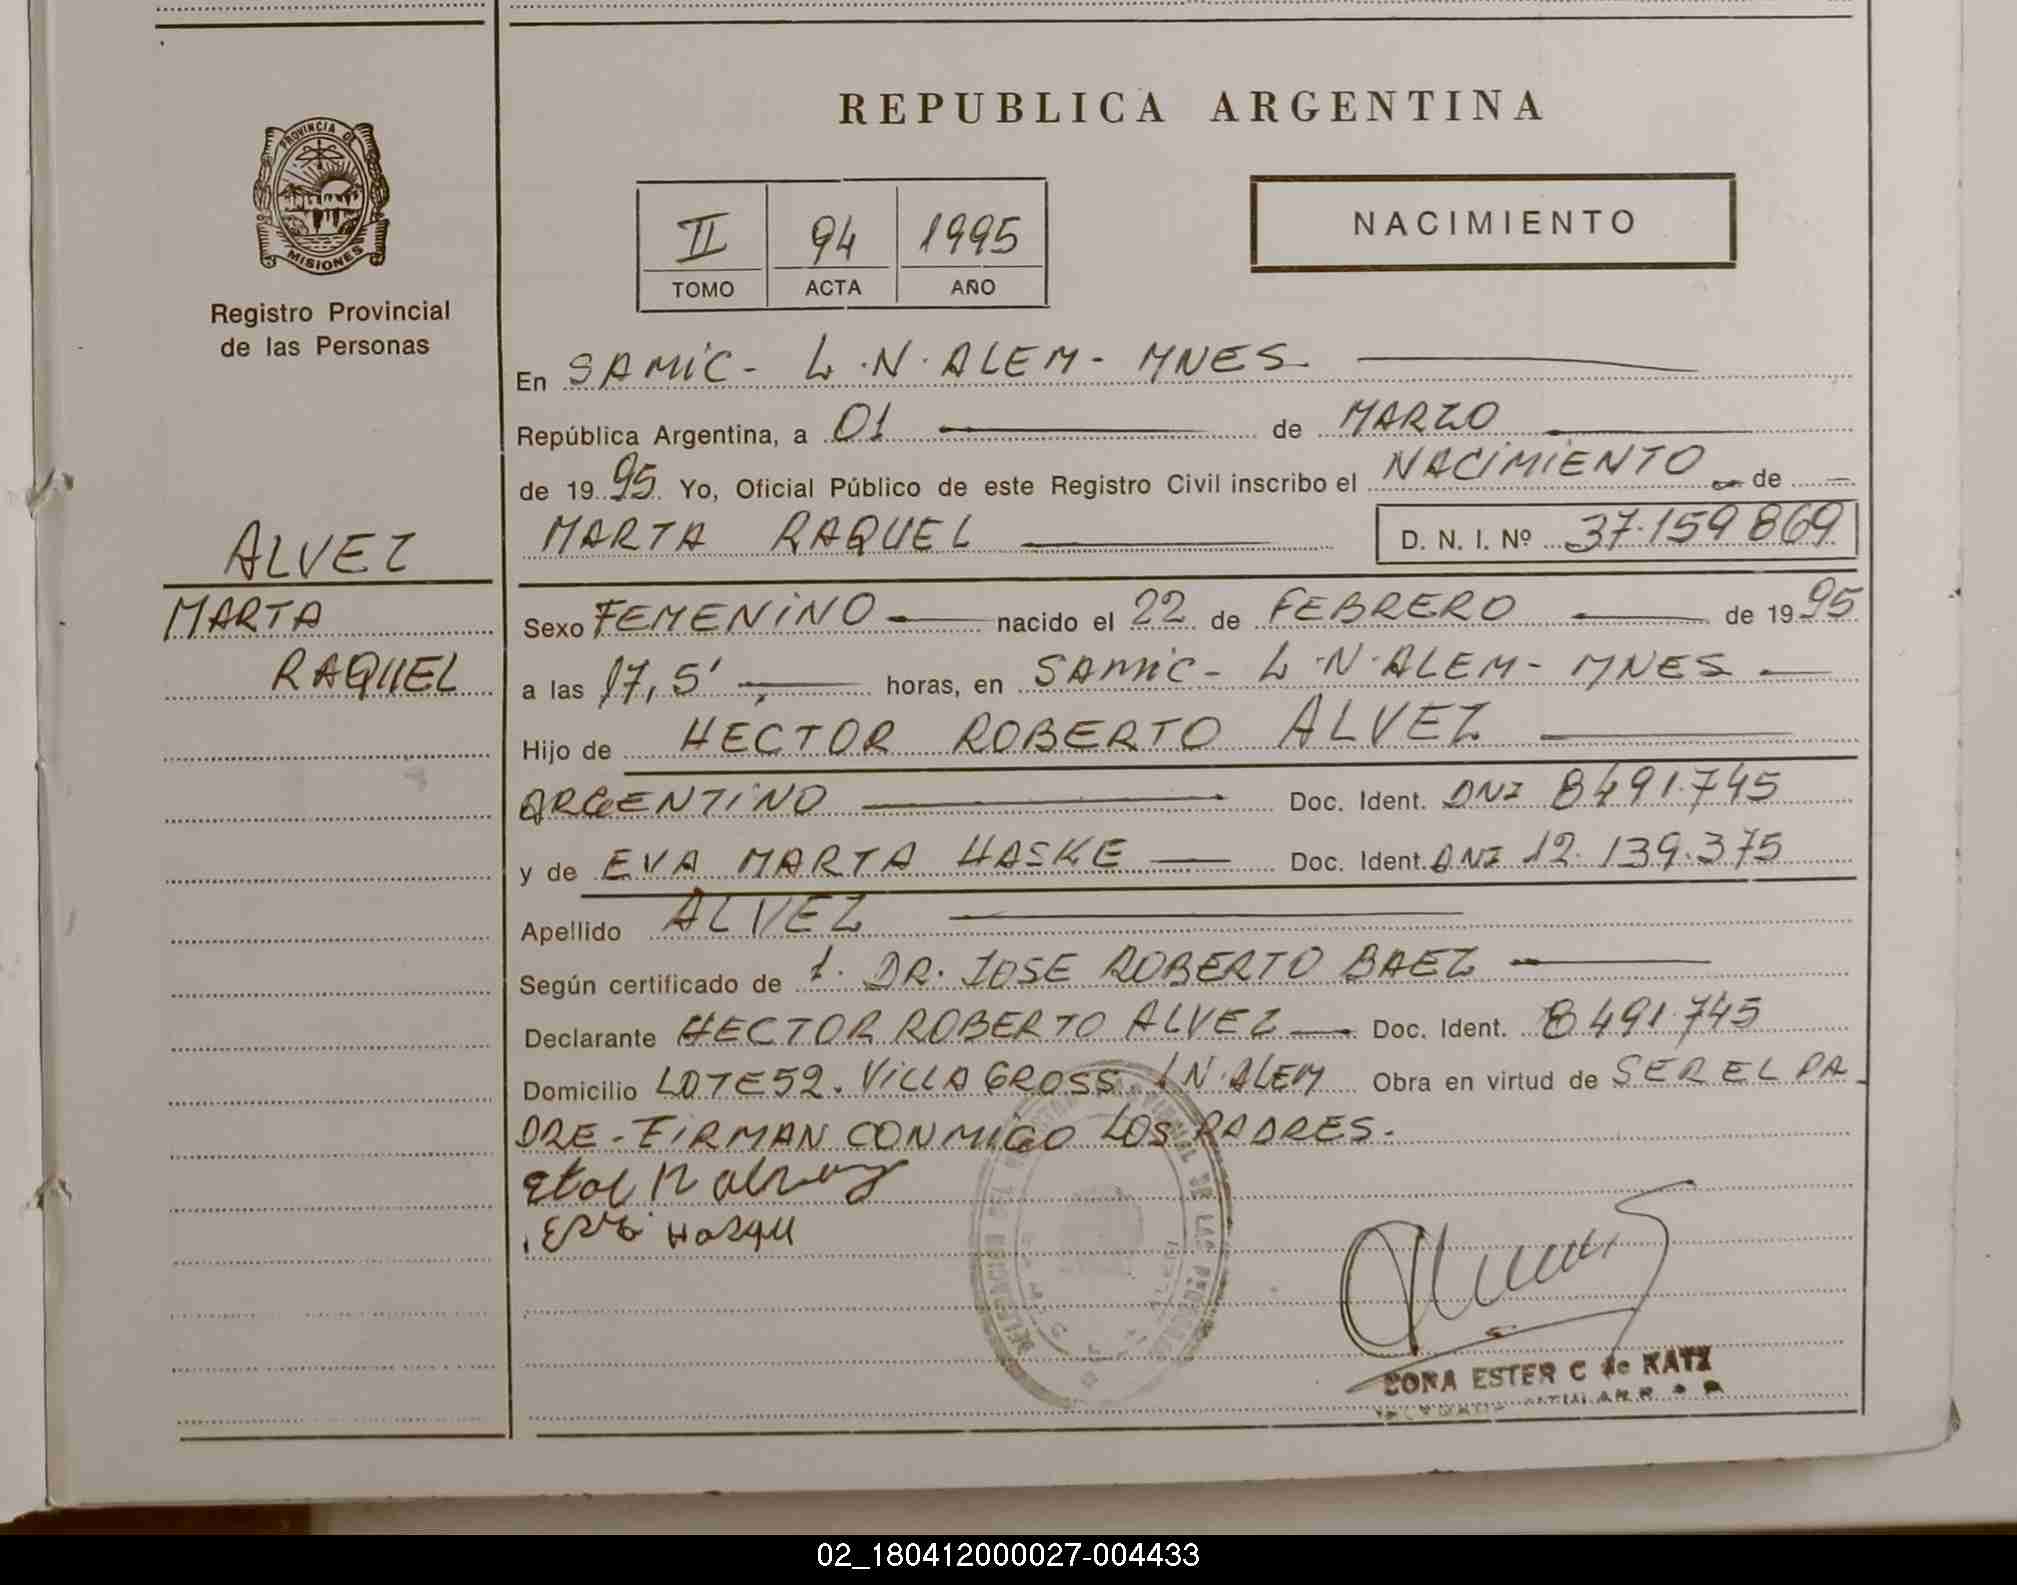 REPUBLICA ARGENTINA
PROVINCIA DE
MISIONES
Registro Provincial
de las Personas
II 94 1995
TOMO ACTA AÑO
NACIMIENTO
En SAMIC - L.N. ALEM - MNES
República Argentina, a 01 de MARZO
de 1995 Yo, Oficial Público de este Registro Civil inscribo el NACIMIENTO de
MARTA RAQUEL D. N. I. Nº 37.159869
ALVEZ
MARTA
RAQUEL
Sexo FEMENINO nacido el 22 de FEBRERO de 1995
a las 17,5' horas, en SAMIC - L.N. ALEM - MNES
Hijo de HECTOR ROBERTO ALVEZ
ARGENTINO Doc. Ident. DNI 8491.745
y de EVA MARTA HASKE Doc. Ident. DNI 12.139.375
Apellido ALVEZ
Según certificado de 1. DR. JOSE ROBERTO BAEZ
Declarante HECTOR ROBERTO ALVEZ Doc. Ident. 8491.745
Domicilio LOTE 52. VILLA GROSS. L N. ALEM Obra en virtud de SER EL PA
DRE - FIRMAN CONMIGO LOS PADRES.
ESTER C de KATZ
02_180412000027-004433